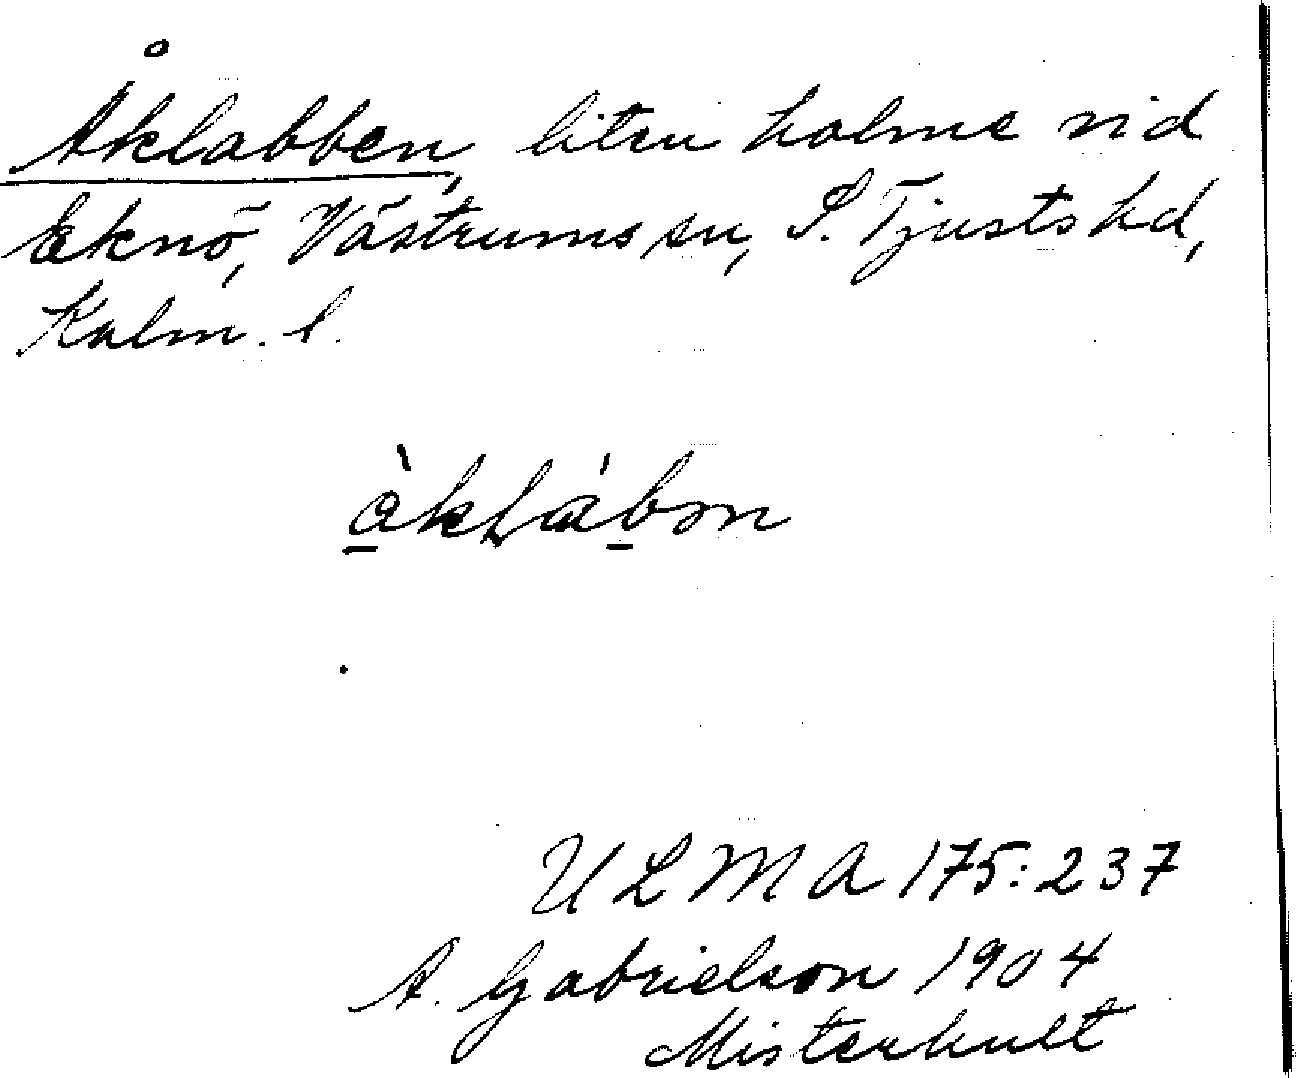 Åklabben, liten holme vid
Eknö, Västrums sn, S. Tjusts hd,
Kalm. l.
ULMA 175:237
A. Gabrielson 1904
Misterhult